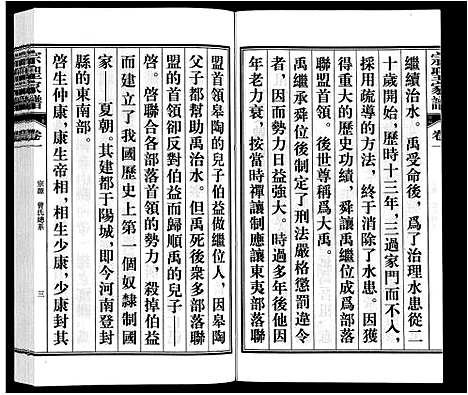 宗聖家譜
卷一
繼續治水。禹受命後，爲了治理水患從二
十歲開始，歷時十三年，三過家門而不入，
採用疏導的方法，終于消除了水患。因獲
得重大的歷史功績，舜讓禹繼位成爲部落
聯盟首領。後世尊稱爲大禹。
禹繼承舜位後制定了刑法嚴格懲罰違令
者，因而勢力日益強大。時過多年後他因
年老力衰，按當時禪讓制應讓東夷部落聯
盟首領皋陶的兒子伯益做繼位人，因皋陶
父子都幫助禹治水。但禹死後衆多部落聯
盟的首領卻反對伯益而歸順禹的兒子——
啓。啓聯合各部落首領的勢力，殺掉伯益
而建立了我國歷史上第一個奴隸制國
家——夏朝。其建都于陽城，即今河南登封
縣的東南部。
啓生仲康，康生帝相，相生少康，少康封其
宗聖家譜
卷一
宗源
曾氏總系
三